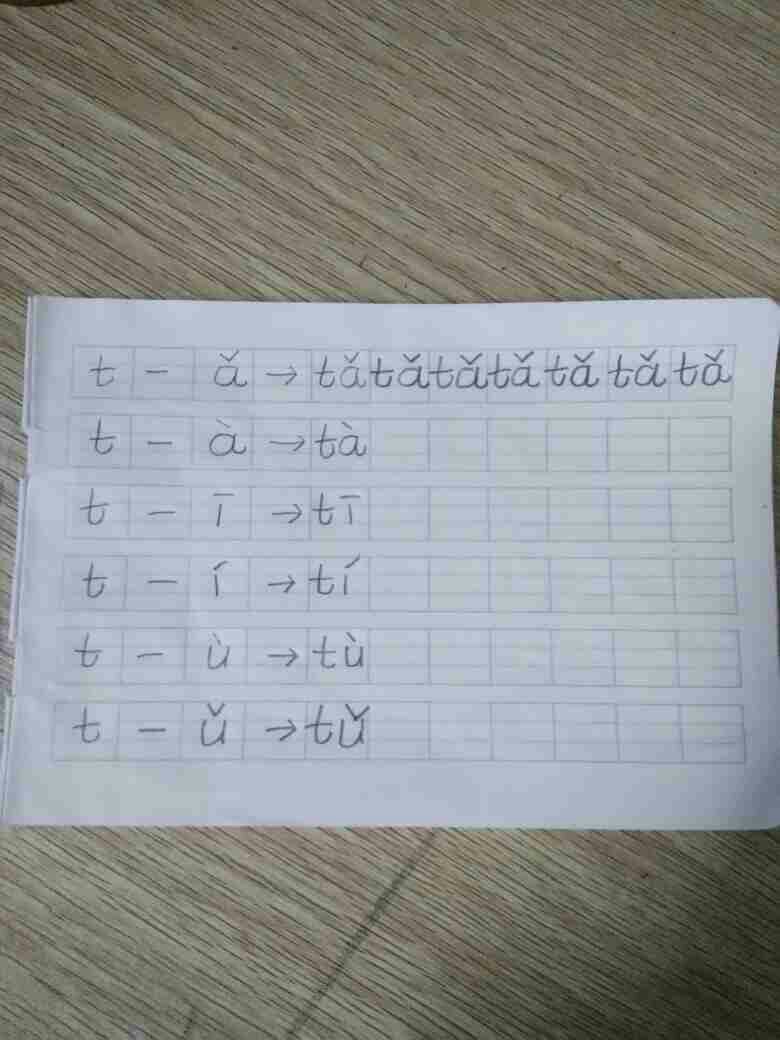 t - ǎ → tǎ tǎ tǎ tǎ tǎ tǎ tǎ
t - à → tà
t - ī → tī
t - í → tí
t - ù → tù
t - ǔ → tǔ